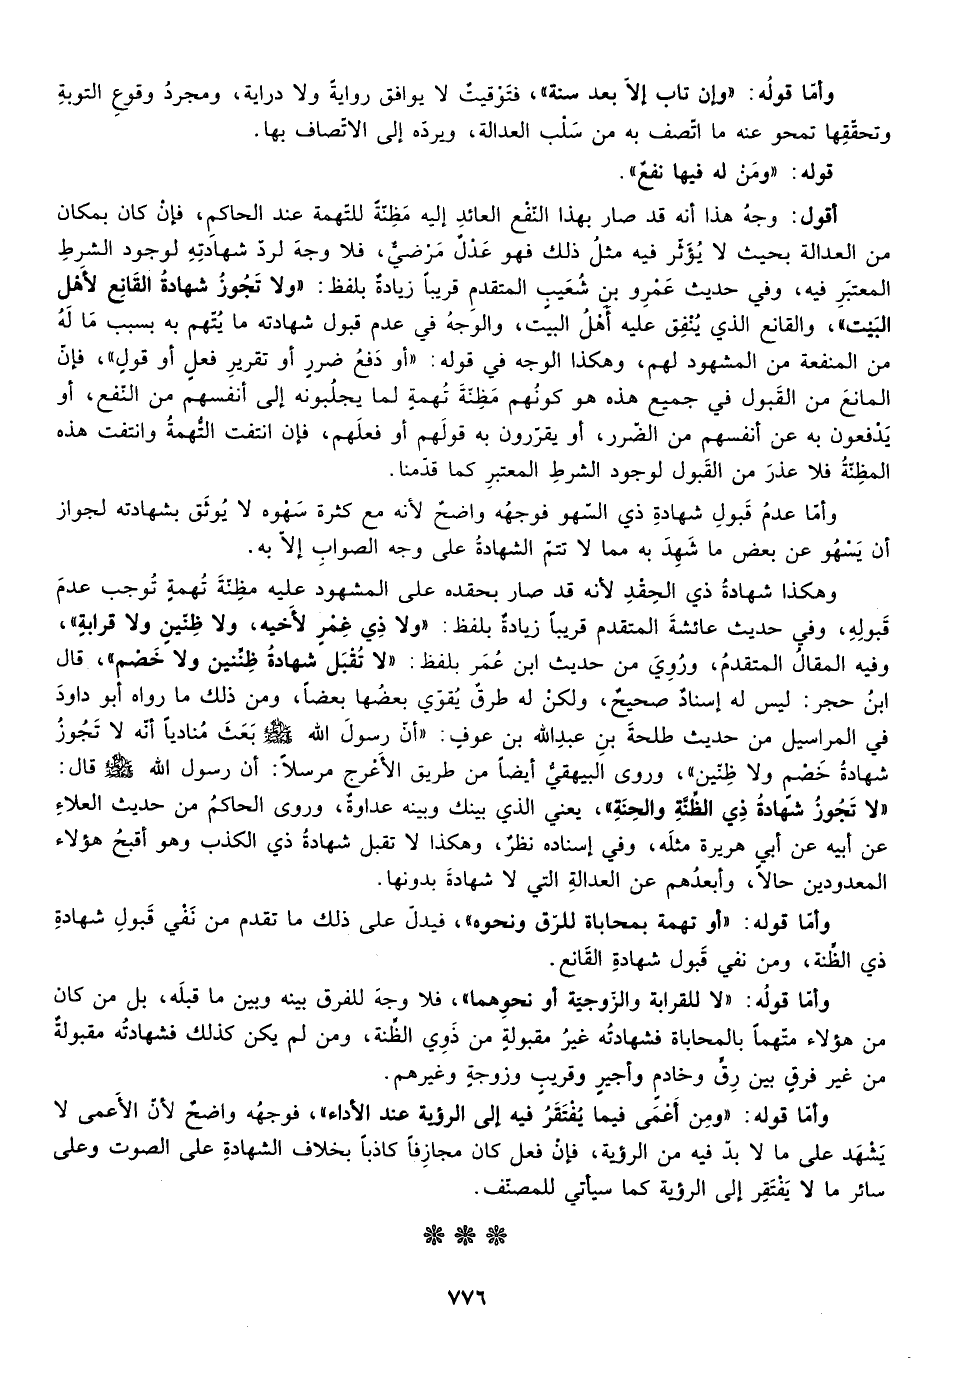 وأمّا قولُه: «وإن تاب إلاّ بعد سنة»، فتَوْقيتٌ لا يوافق روايةً ولا دراية، ومجردُ وقوعِ التوبةِ
وتحقّقِها تمحو عنه ما اتّصف به من سَلْب العدالة، ويردّه إلى الاتّصاف بها.
قوله: «ومَنْ له فيها نفعٌ».
أقول: وجهُ هذا أنه قد صار بهذا النّفْع العائدِ إليه مَظِنّةً للتّهمة عند الحاكمِ، فإنْ كان بمكان
من العدالة بحيث لا يُؤَثّر فيه مثلُ ذلك فهو عَدْلٌ مَرْضيٌّ، فلا وجهَ لردّ شهادَتِهِ لوجود الشرطِ
المعتبَرِ فيه، وفي حديث عَمْرِو بنِ شُعَيبٍ المتقدمِ قريباً زيادةٌ بلفظ: «ولا تَجُوزُ شهادةُ القَانِعِ لأهل
البَيْت»، والقانع الذي يُنْفِق عليه أهْلُ البيت، والوَجهُ في عدم قبول شهادته ما يُتّهم به بسبب مَا لَهُ
من المنفعة من المشهود لهم، وهكذا الوجه في قوله: «أو دَفعُ ضررٍ أو تقريرِ فعلٍ أو قولٍ»، فإنّ
المانعَ من القَبول في جميع هذه هو كونُهم مَظِنّةَ تُهمةٍ لما يجلُبونه إلى أنفسهم من النّفع، أو
يَدْفعون به عن أنفسهم من الضّرر، أو يقرّرون به قولَهم أو فعلَهم، فإن انتفت التُّهمةُ وانتفت هذه
المظِنّةُ فلا عذرَ من القَبول لوجود الشرط المعتبرِ كما قدّمنا.
وأمّا عدمُ قَبولِ شهادةِ ذي السّهو فوجهُه واضحٌ لأنه مع كثرة سَهْوه لا يُوثَق بشهادته لجواز
أن يَسْهُو عن بعض ما شَهِدَ به مما لا تتمّ الشهادةُ على وجه الصوابِ إلاّ به.
وهكذا شهادةُ ذي الحِقْدِ لأنه قد صار بحقده على المشهود عليه مظِنّةَ تُهمةٍ تُوجب عدمَ
قَبولِهِ، وفي حديث عائشةَ المتقدم قريباً زيادةٌ بلفظ: «ولا ذي غِمْرٍ لأخيه، ولا ظِنّينٍ ولا قرابةٍ»،
وفيه المقالُ المتقدمُ، ورُوِيَ من حديث ابن عُمَر بلفظ: «لا تُقْبَل شهادةُ ظِنّنين ولا خَصْم»، قال
ابنُ حجر: ليس له إسنادٌ صحيحٌ، ولكنْ له طرقٌ يُقوّي بعضُها بعضاً، ومن ذلك ما رواه أبو داودَ
في المراسيل من حديث طلحةَ بنِ عبدِالله بن عوفٍ: «أنّ رسولَ الله ﷺ بَعَثَ مُنادياً أنّه لا تَجُوزُ
شهادةُ خَصْمٍ ولا ظِنّين»، وروى البيهقيُّ أيضاً من طريق الأعْرج مرسلاً: أن رسول الله ﷺ قال:
«لا تَجُوزُ شهادةُ ذي الظِّنَّةِ والحِنَةِ»، يعني الذي بينك وبينه عداوةٌ، وروى الحاكمُ من حديث العلاءِ
عن أبيه عن أبي هريرة مثلَه، وفي إسناده نظرٌ، وهكذا لا تقبل شهادةُ ذي الكذب وهو أقبحُ هؤلاء
المعدودين حالاً، وأبعدُهم عن العدالةِ التي لا شهادةَ بدونها.
وأمّا قوله: «أو تهمة بمحاباة للرّق ونحوه»، فيدلّ على ذلك ما تقدم من نَفْي قَبولِ شهادةِ
ذي الظِّنة، ومن نفي قَبول شهادةِ القَانع.
وأمّا قولُه: «لا للقرابة والزّوجيّة أو نحوِهما»، فلا وجهَ للفرق بينه وبين ما قبلَه، بل من كان
من هؤلاء متّهماً بالمحاباة فشهادتُه غيرُ مقبولةٍ من ذَوِي الظّنة، ومن لم يكن كذلك فشهادتُه مقبولةٌ
من غير فرقٍ بين رِقٍّ وخادمٍ وأجيرٍ وقريبٍ وزوجةٍ وغيرهم.
وأمّا قوله: «ومِن أعْمَى فيما يُفْتَقَرُ فيه إلى الرؤية عند الأداء»، فوجهُه واضحٌ لأنّ الأعمى لا
يَشْهَد على ما لا بدّ فيه من الرؤية، فإنْ فعل كان مجازِفاً كاذباً بخلاف الشهادةِ على الصوت وعلى
سائر ما لا يَفْتَقِر إلى الرؤية كما سيأتي للمصنّف.
❋ ❋ ❋
٧٧٦